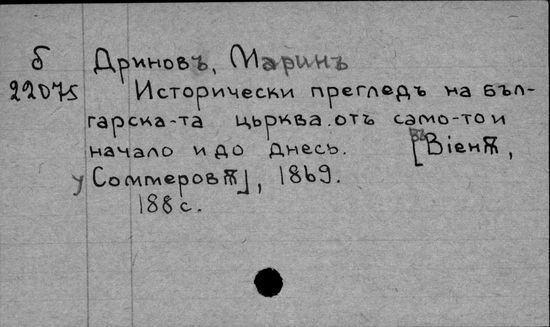 б Дриновъ, Маринъ
22075 Исторически прегледъ на Бъл-
гарска-та църква отъ само-то и
начало и до днесь. [Въ Віенѫ,
у Соммеровѫ], 1869.
188 с.